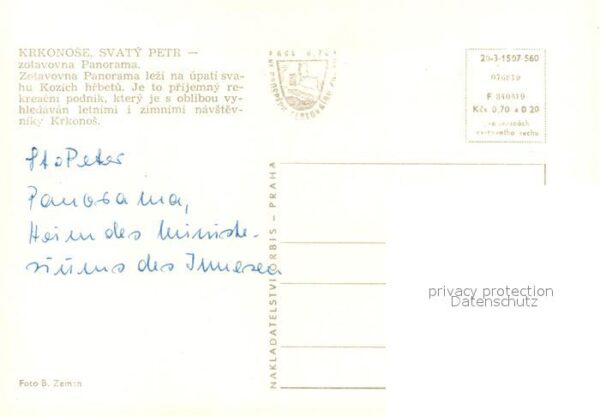 KRKONOŠE, SVATÝ PETR —
zotavovna Panorama.
Zotavovna Panorama leží na úpatí sva-
hu Kozích hřbetů. Je to příjemný re-
kreační podnik, který je s oblibou vy-
hledáván letními i zimními návštěv-
níky Krkonoš.
20-3-1507-560
076819
F 840819
Kčs 0,70 a D 20
St. Peter
Panorama,
Heim des Ministe-
riums des Inneren
NAKLADATELSTVÍ ORBIS - PRAHA
privacy protection
Datenschutz
Foto B. Zeman